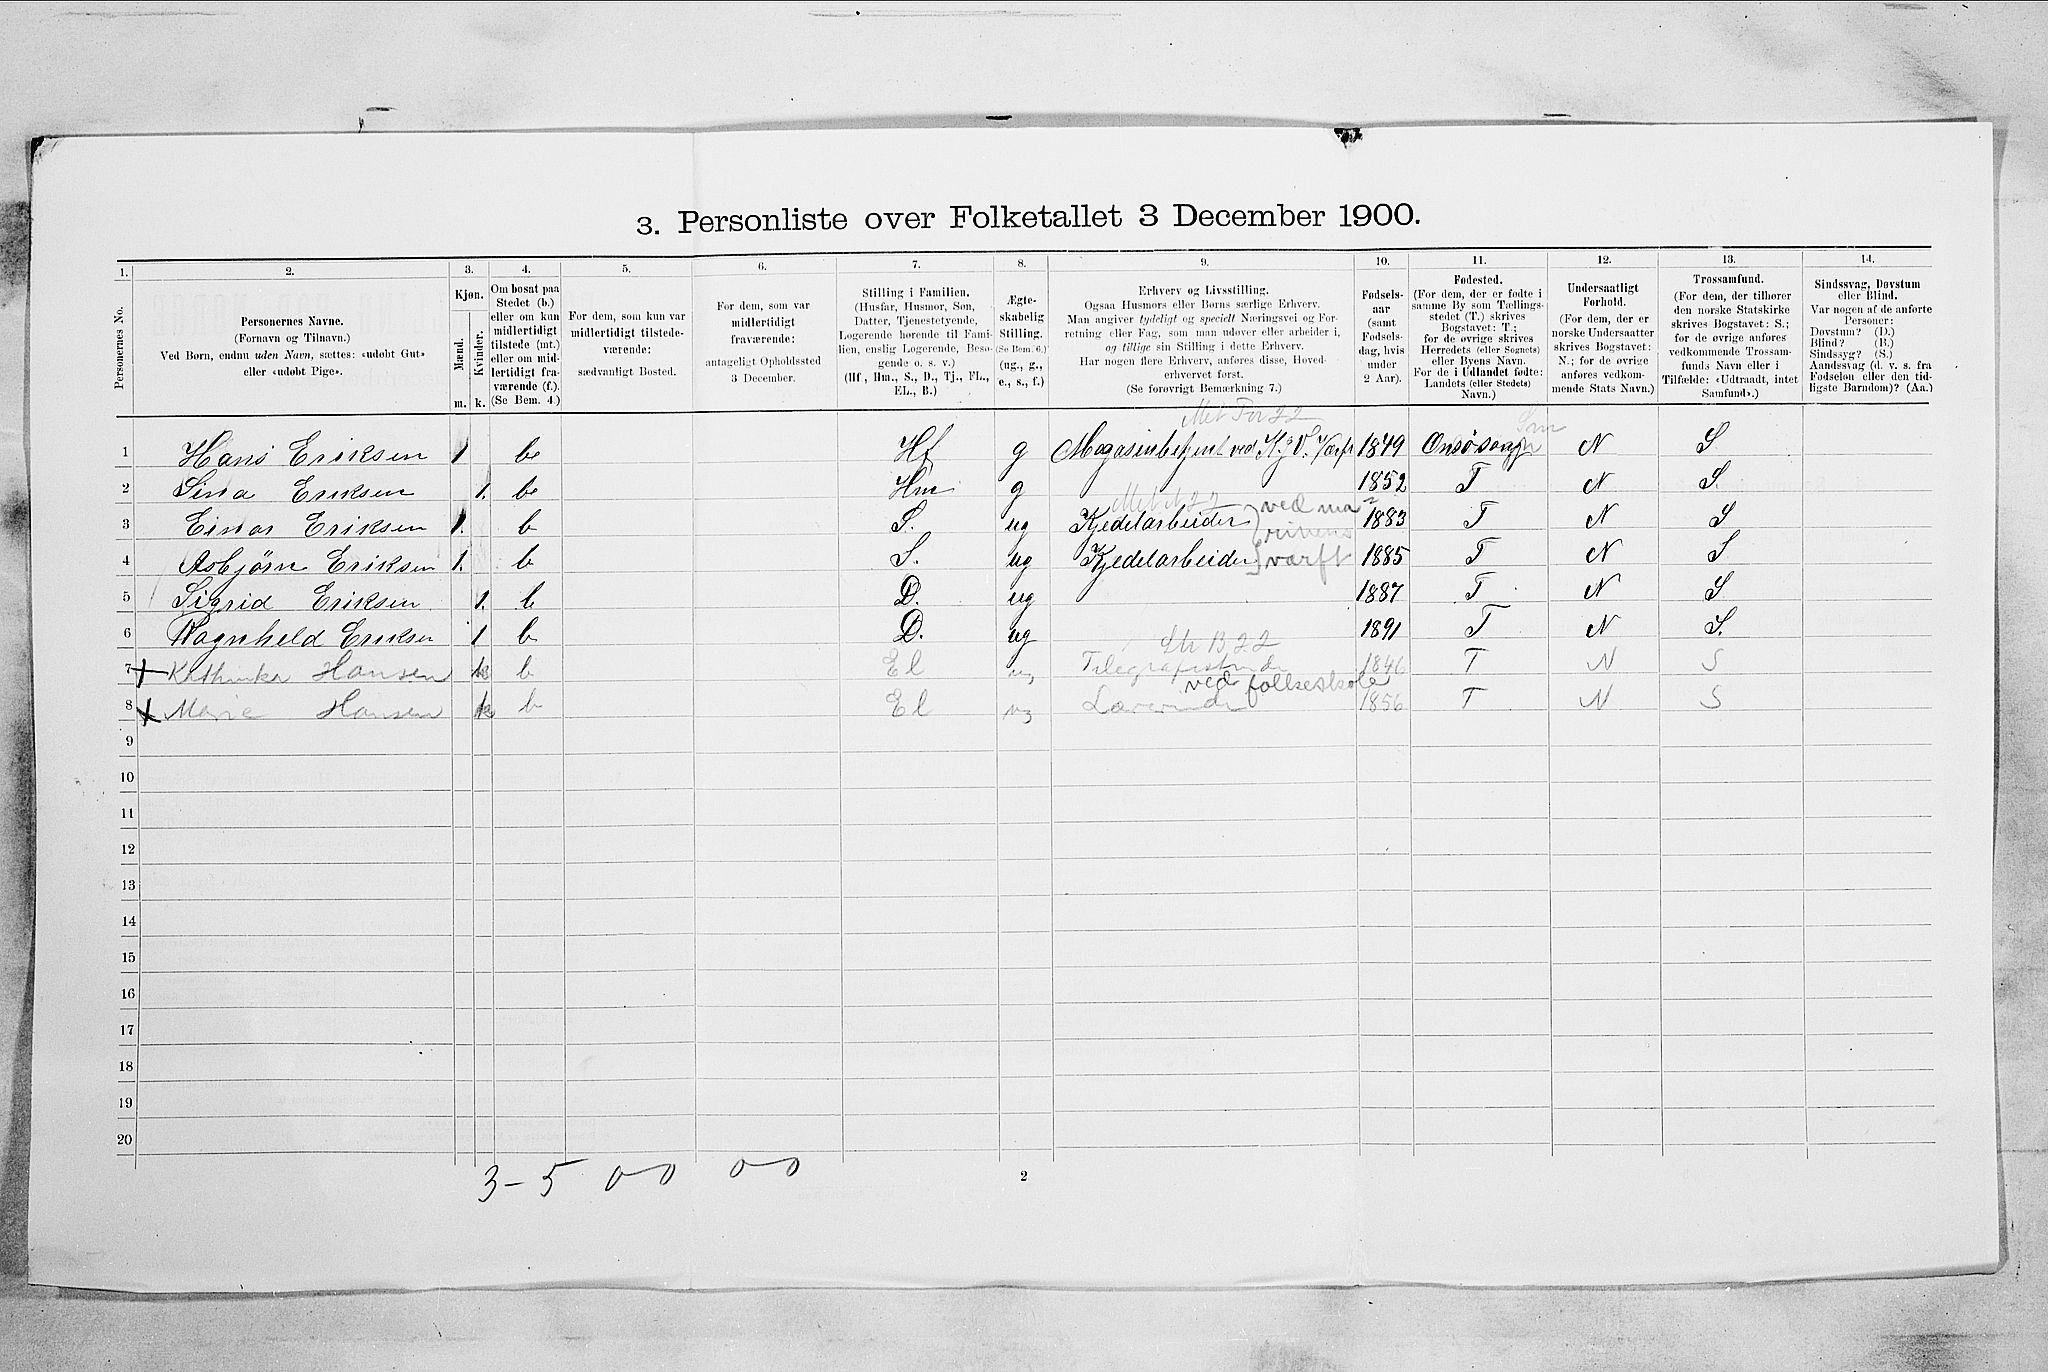 3. Personliste over Folketallet 3 December 1900.
1. 2. 3. 4. 5. 6. 7. 8. 9. 10. 11. 12. 13. 14.
Personernes No.
Personernes Navne.
(Fornavn og Tilnavn.)
Ved Børn, endnu uden Navn, sættes: «udøbt Gut»
eller «udøbt Pige».
Kjøn.
Mænd. Kvinder.
m. k.
Om bosat paa
Stedet (b.)
eller om kun
midlertidigt
tilstede (mt.)
eller om mid-
lertidigt fra-
værende (f.).
(Se Bem. 4.)
For dem, som kun var
midlertidigt tilstede-
værende:
sædvanligt Bosted.
For dem, som var
midlertidigt
fraværende:
antageligt Opholdssted
3 December.
Stilling i Familien.
(Husfar, Husmor, Søn,
Datter, Tjenestetyende,
Logerende hørende til Fami-
lien, enslig Logerende, Besø-
gende o. s. v.)
(Hf., Hm., S., D., Tj., FL.,
EL., B.)
Ægte-
skabelig
Stilling.
(Se Bem. 6.)
(ug., g.,
e., s., f.)
Erhverv og Livsstilling.
Ogsaa Husmors eller Børns særlige Erhverv.
Man angiver tydeligt og specielt Næringsvei og For-
retning eller Fag, som man udøver eller arbeider i,
og tillige sin Stilling i dette Erhverv.
Har nogen flere Erhverv, anføres disse, Hoved-
erhvervet først.
(Se forøvrigt Bemærkning 7.)
Fødsels-
aar
(samt
Fødsels-
dag, hvis
under
2 Aar).
Fødested.
(For dem, der er fødte i
samme By som Tællings-
stedet (T.) skrives
Bogstavet: T.;
for de øvrige skrives
Herredets (eller Sognets)
eller Byens Navn.
For de i Udlandet fødte:
Landets (eller Stedets)
Navn.)
Undersaatligt
Forhold.
(For dem, der er
norske Undersaatter
skrives Bogstavet:
N.; for de øvrige
anføres vedkom-
mende Stats Navn.)
Trossamfund.
(For dem, der tilhører
den norske Statskirke
skrives Bogstavet: S.;
for de øvrige anføres
vedkommende Trossam-
funds Navn eller i
Tilfælde: «Udtraadt, intet
Samfund».)
Sindssvag, Døvstum
eller Blind.
Var nogen af de anførte
Personer:
Døvstum? (D.)
Blind? (B.)
Sindssyg? (S.)
Aandssvag (d. v. s. fra
Fødselen eller den tid-
ligste Barndom)? (Aa.)
1 Hans Eriksen 1. be Hf g Magasinbetjent ved K.J.V. Værft 1849 Onsösogn N S
2 Sina Eriksen 1. be Hm g 1852 T N S
3 Einar Eriksen 1. b S. ug Kjedelarbeider ved ma 1883 T N S
rinens
4 Asbjørn Eriksen 1. b S. ug Kjedelarbeider varft 1885 T N S
5 Sigrid Eriksen 1. b D. ug 1887 T N S
6 Ragnhild Eriksen 1 b D. ug 1891 T N S.
7 Kathinka Hansen k b El ug Telegrafistinde 1846 T N S
ved folkeskole
8 Marie Hansen k b El ug Lærerinde 1856 T N S
9
10
11
12
13
14
15
16
17
18
19
20
3-5 00 00
2